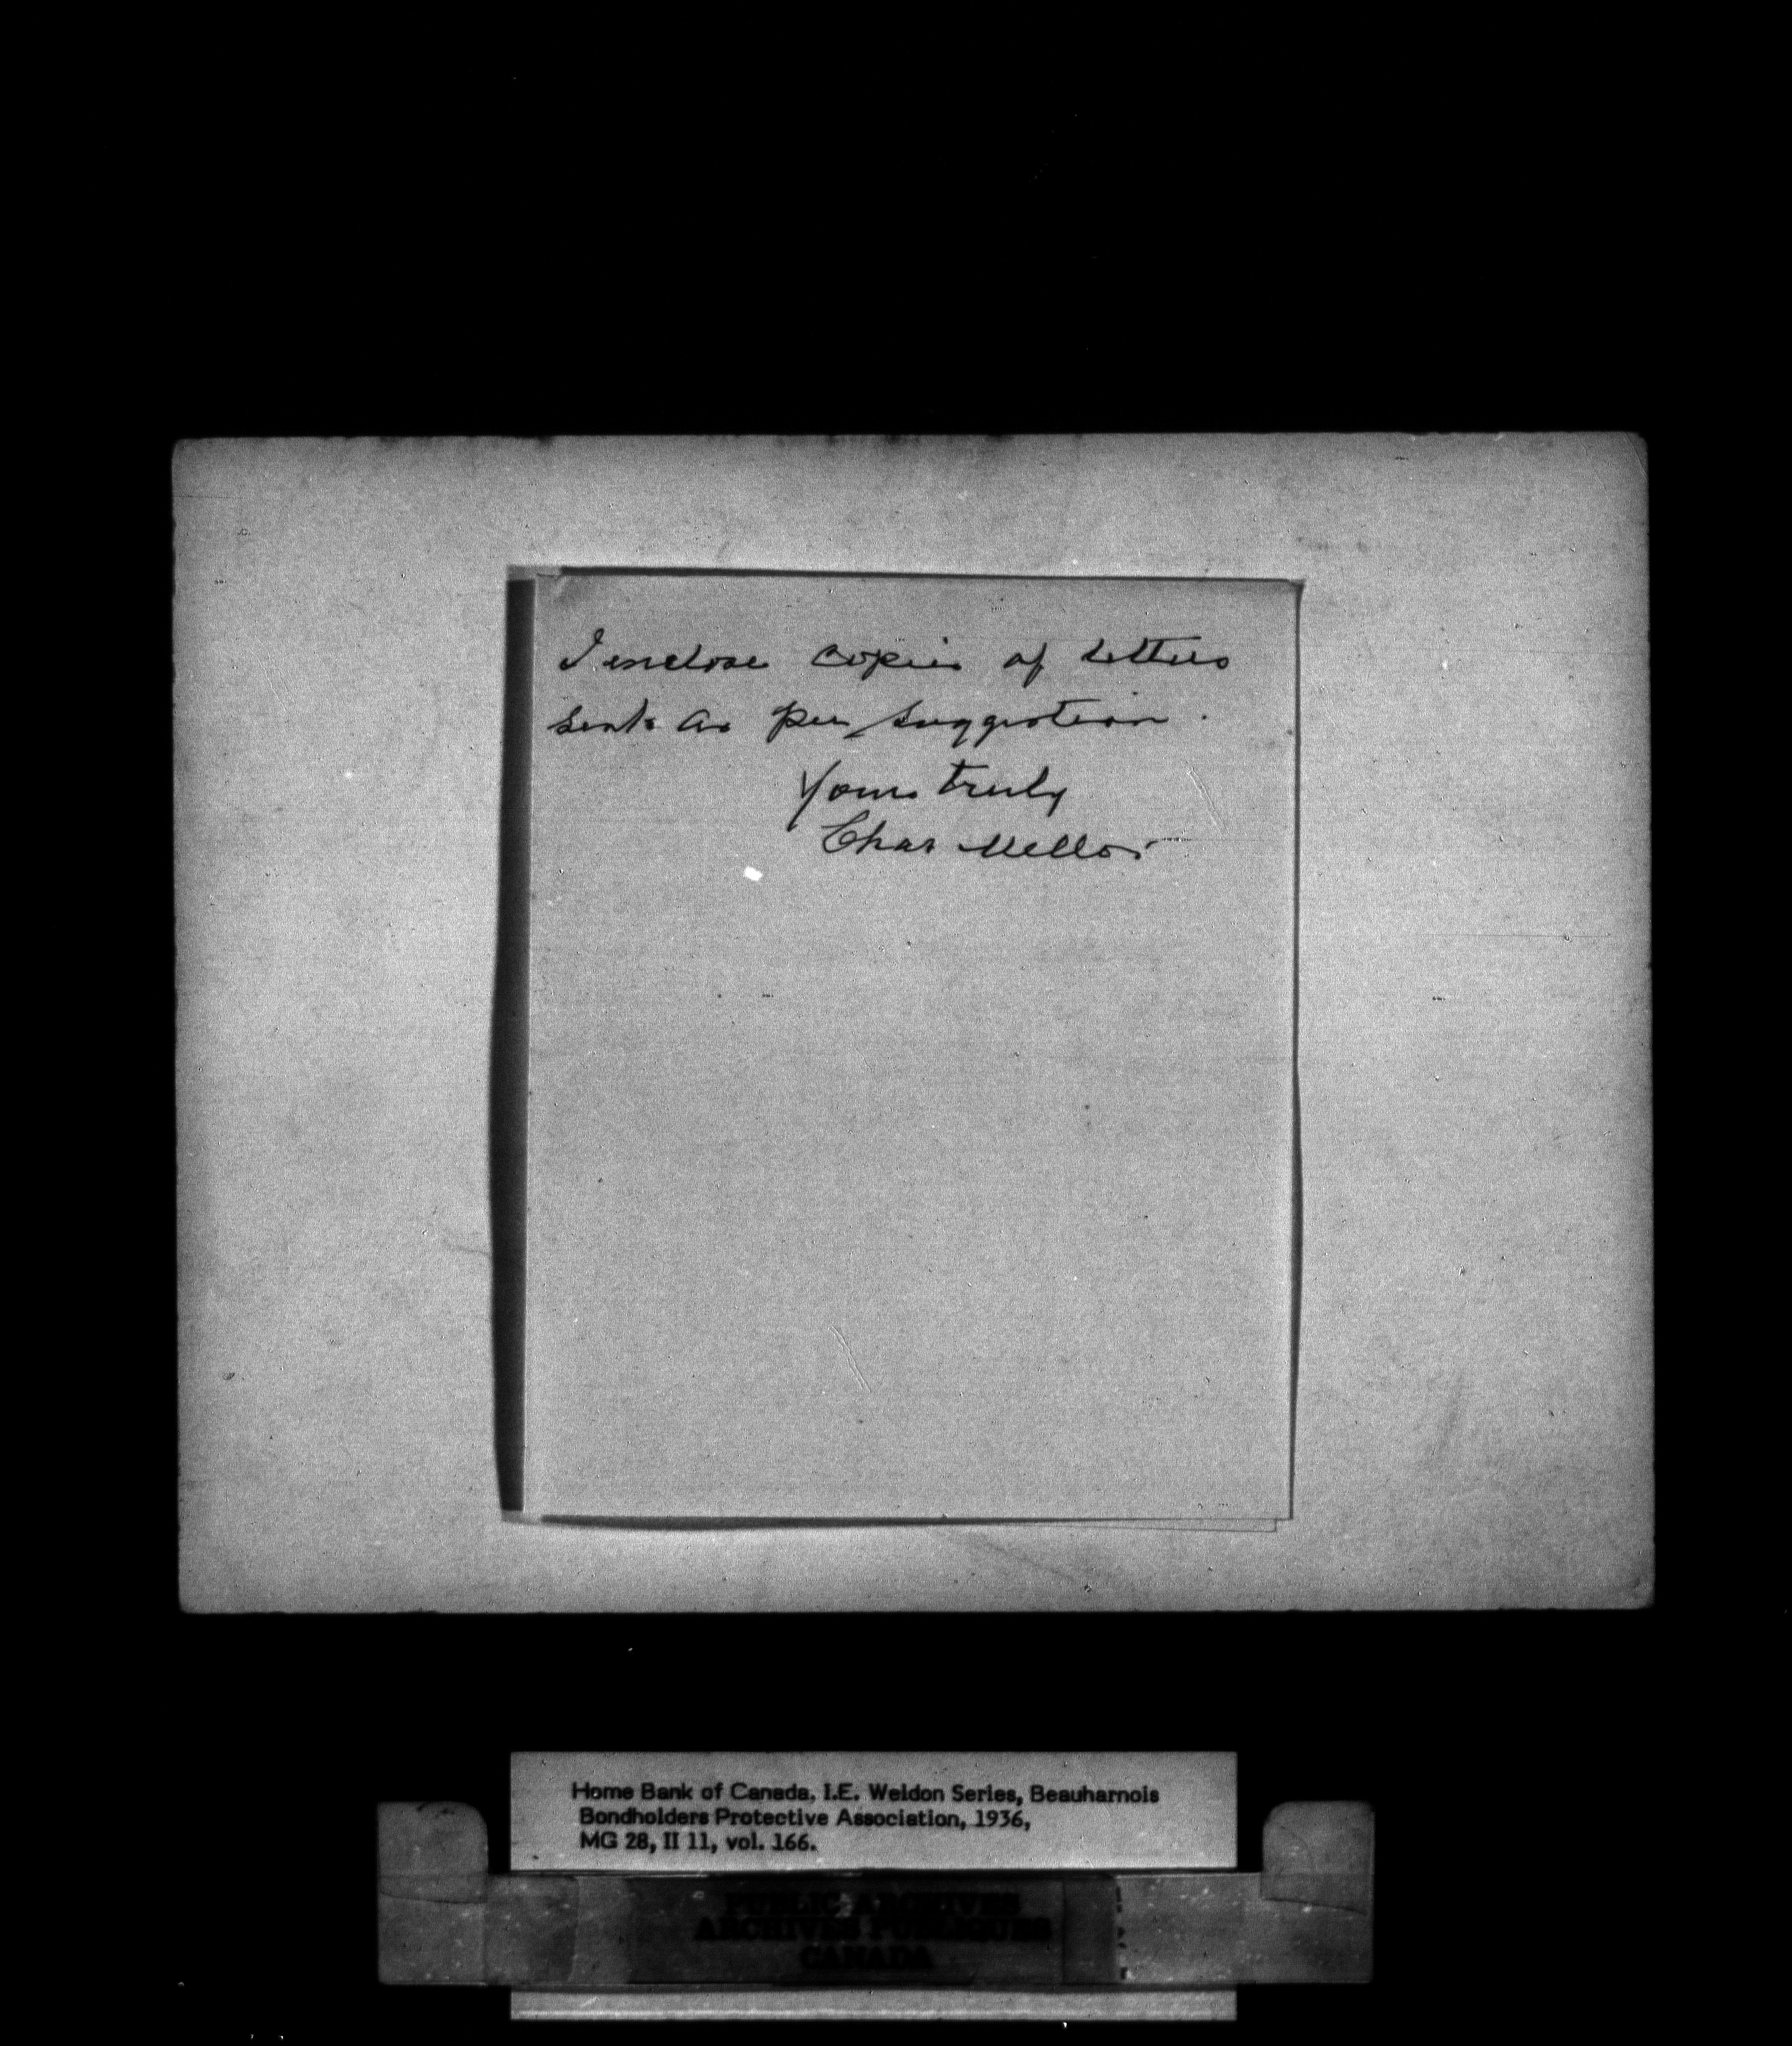 I enclose copies of letters
sent as per suggestion.
Yours truly
Chas Mellor
Home Bank of Canada, I.E. Weldon Series, Beauharnois
Bondholders Protective Association, 1936,
MG 28, II 11, vol. 166.
PUBLIC ARCHIVES
ARCHIVES PUBLIQUES
CANADA